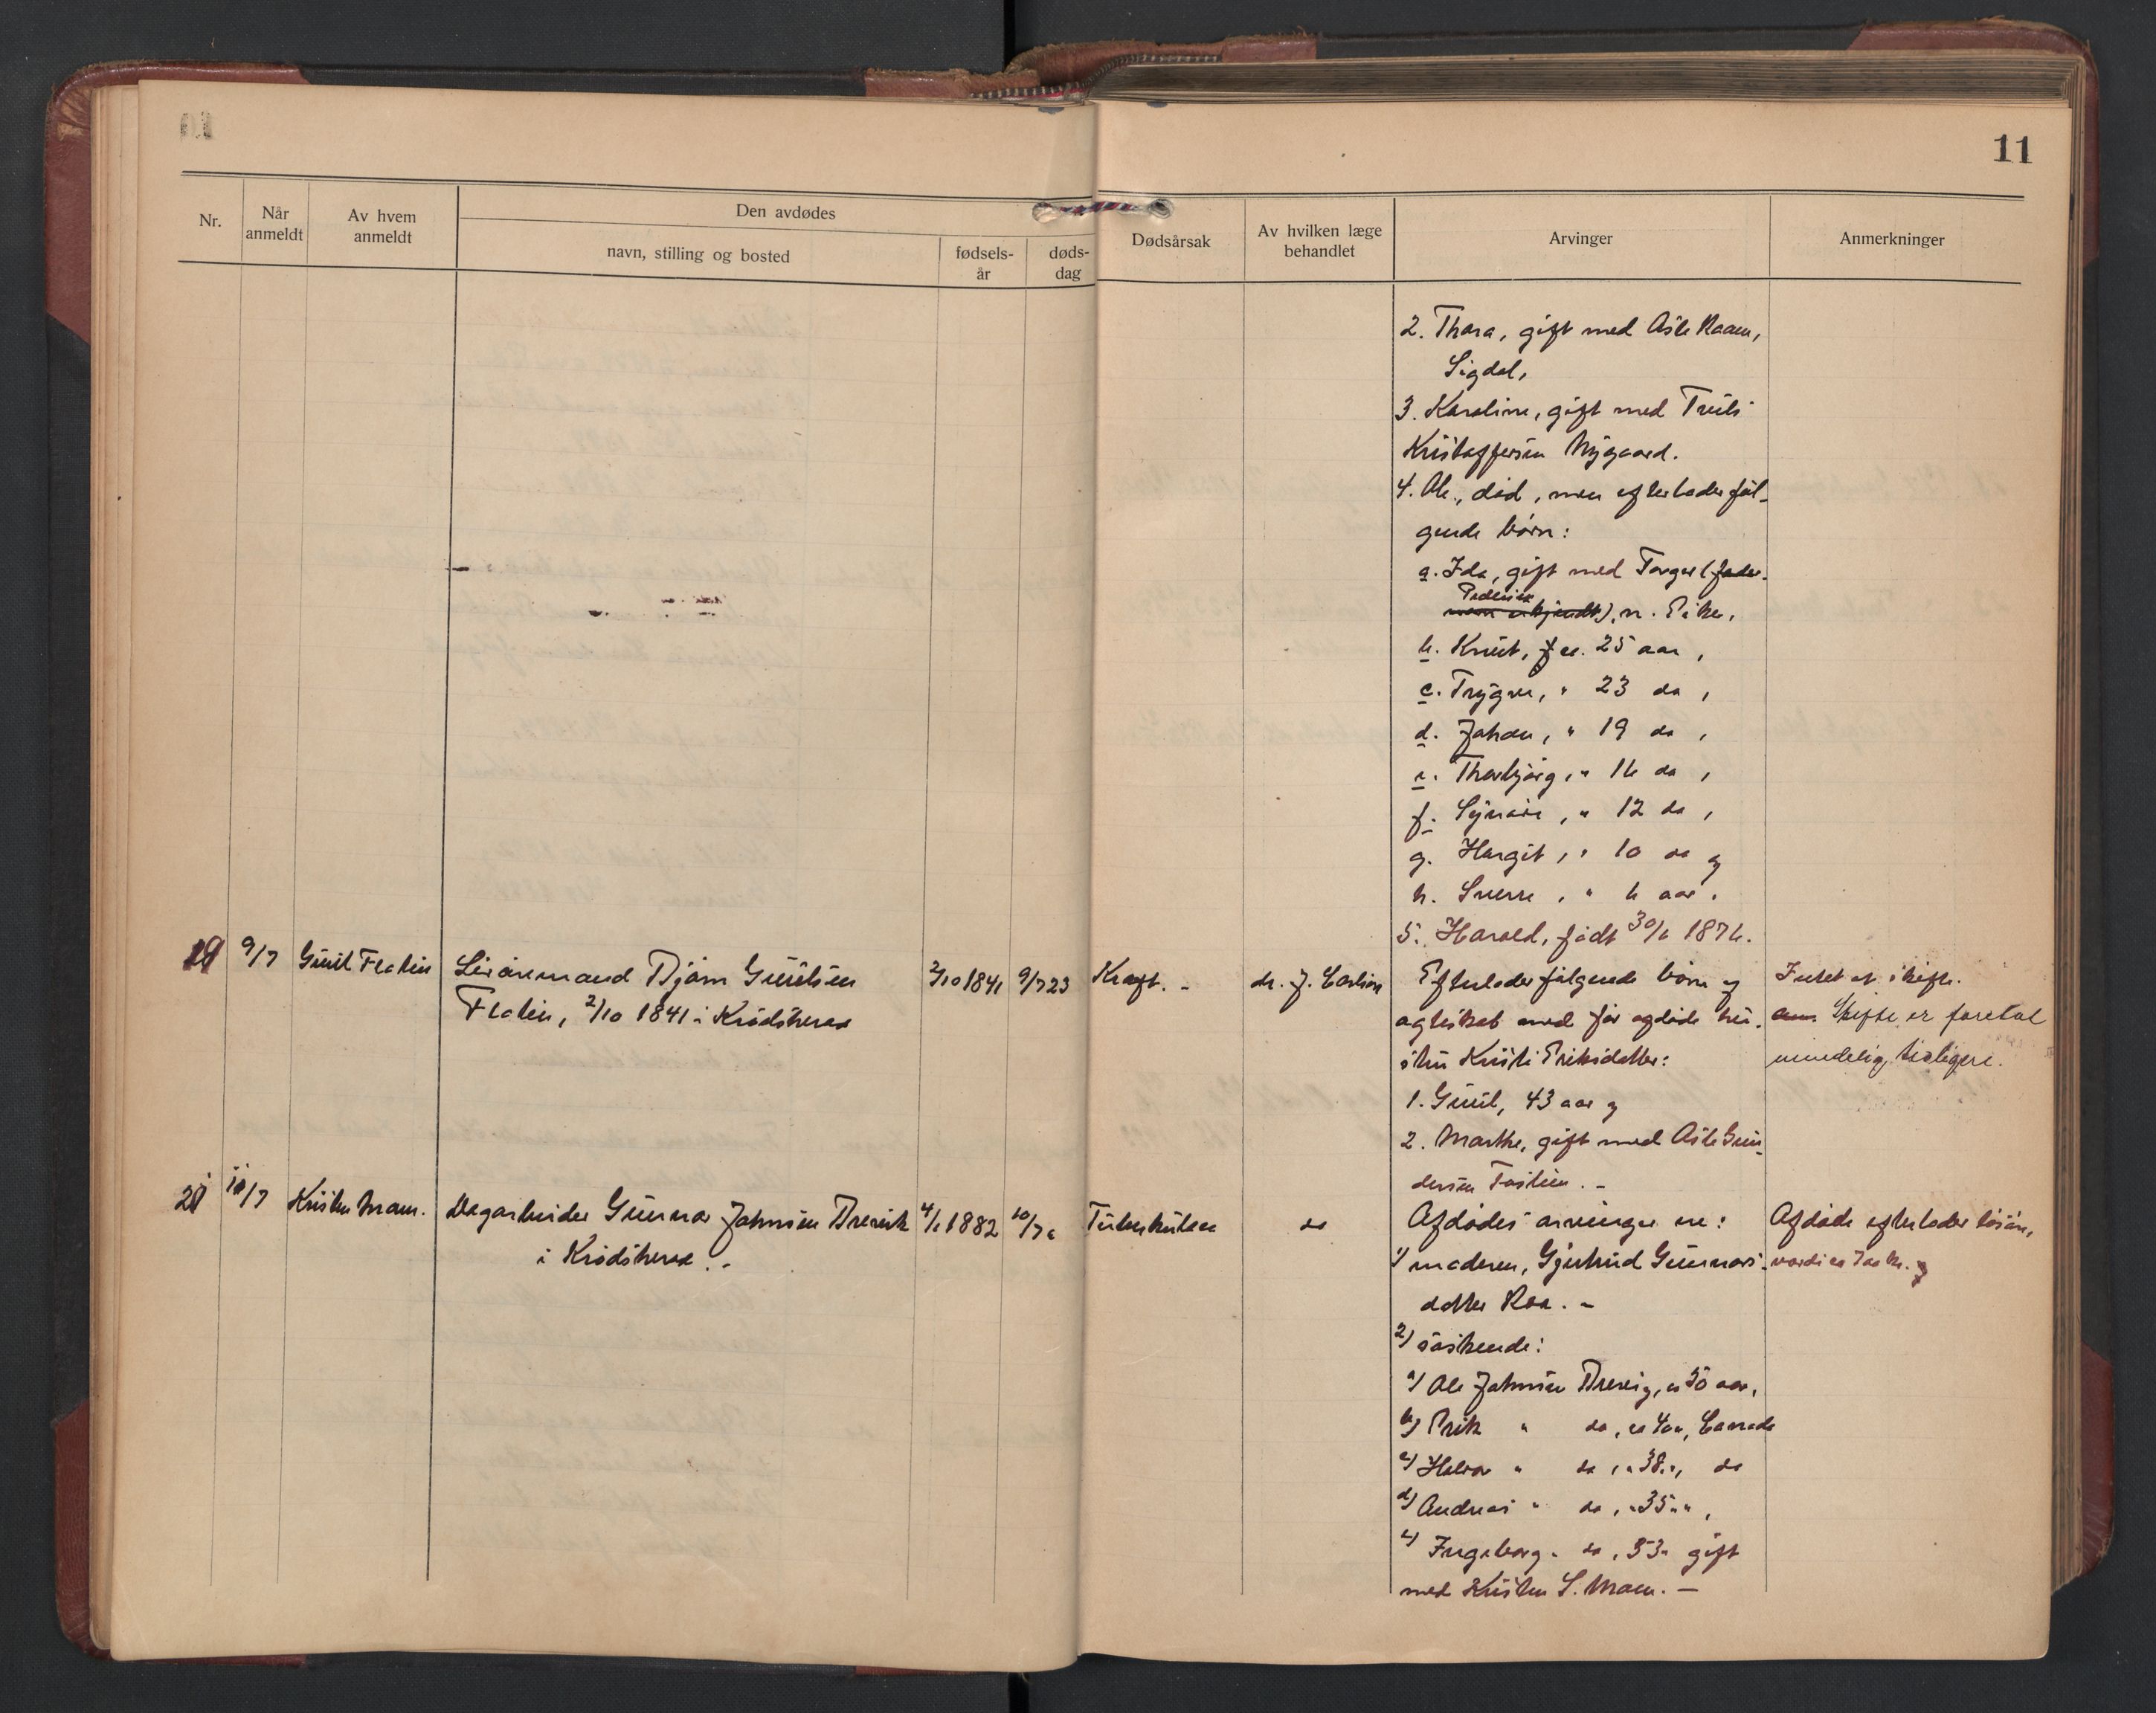 11
Nr.
Når
anmeldt
Av hvem
anmeldt
Den avdødes
navn, stilling og bosted
fødsels-
år
døds-
dag
Dødsårsak
Av hvilken læge
behandlet
Arvinger
Anmerkninger
2. Thora, gift med Asle Raaen,
Sigdal,
3. Karoline, gift med Truls
Kristoffersen Nygaard.
4. Ole, død, men efterlader føl-
gende børn:
a. Ida, gift med Torger (fader-
Pedersen
n. Eike,
b. Knut, f ca. 25 aar,
c. Trygve, " 23 do,
d. Johan, " 19 do,
e. Thorbjørg, " 16 do,
f. Synøve, " 12 do,
g. Margit, " 10 do og
h. Sverre, " 6 aar.
5. Harald, født 30/6 1876.
19 9/7 Gunil Flatin Livøremand Bjørn Gunilsen 2/10 1841 9/7 23 Kræft. - dr. J. Carlson Efterlader følgende børn og Intet at skifte.
Flatin, 2/10 1841 i Krødsherad
ægteskab med før afdøde hu- Skifte er foretat
stru Kristi Eriksdatter: mindelig tidligere.
1. Gunil, 43 aar og
2. Marthe, gift med Asle Gun-
dersen Taslien. -
20 10/7 Kristen Moen. Dagarbeider Gunnar Johnsen Brevik 4/1 1882 10/7 Tuberkulose do Afdødes arvinger er: Afdøde efterlader løsøre,
i Krødsherad. -
1) moderen, Gjertrud Gunnars- værdi ca kr. og
datter Roa. -
2) søskende:
a) Ole Johnsen Brevig, ca 50 aar,
b) Erik " do, ca 40 ", Canada
c) Halvor " do, " 38 ", do
d) Andreas " do, " 35 " ",
e) Ingeborg " do, 53 " gift
med Kristen S. Moen. -